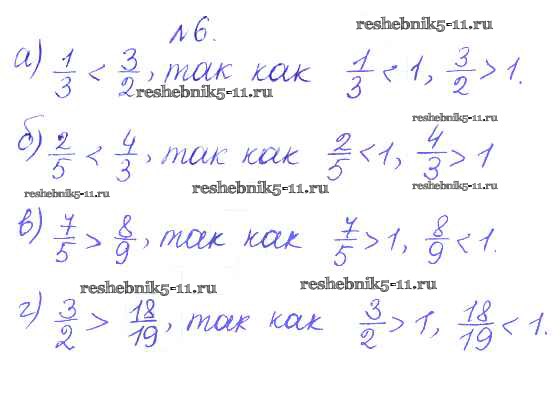 №6.
reshebnik5-11.ru
а) 1/3 < 3/2, так как 1/3 < 1, 3/2 > 1.
reshebnik5-11.ru
reshebnik5-11.ru
б) 2/5 < 4/3, так как 2/5 < 1, 4/3 > 1
reshebnik5-11.ru
reshebnik5-11.ru
reshebnik5-11.ru
в) 7/5 > 8/9, так как 7/5 > 1, 8/9 < 1.
reshebnik5-11.ru
reshebnik5-11.ru
г) 3/2 > 18/19, так как 3/2 > 1, 18/19 < 1.